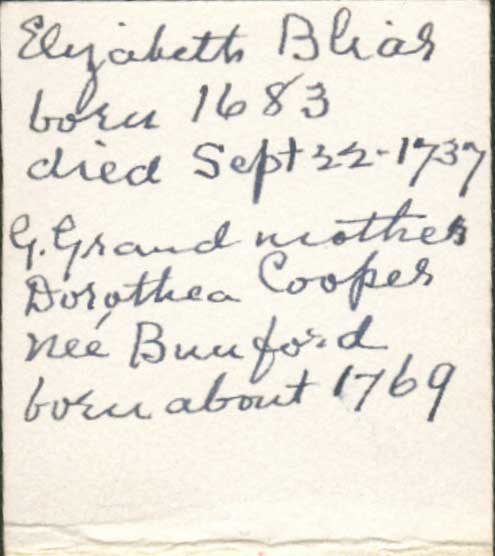 Elizabeth Blias
born 1683
died Sept 22-1737
G. Grand mother
Dorothea Cooper
neé Bunford
born about 1769